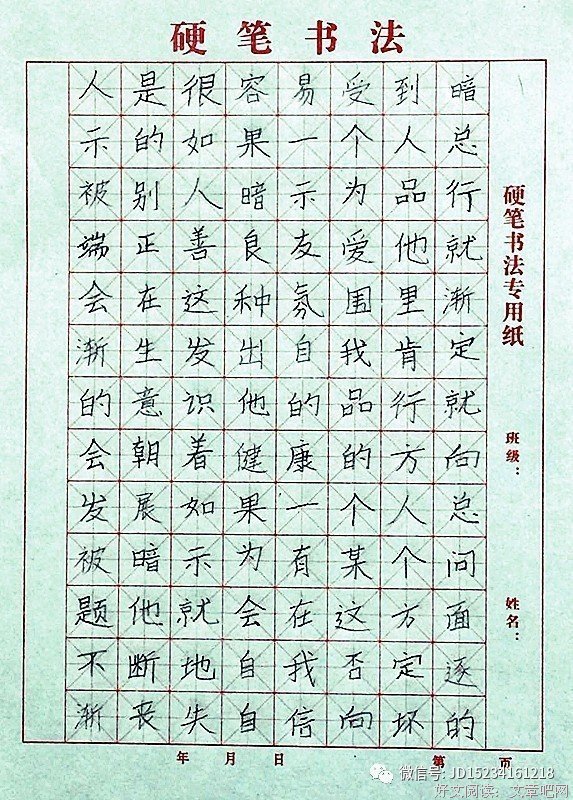 硬笔书法
人是很容易受到暗
示的如果一个人总
被别人暗示为品行
端正善良友爱他就
会在这种氛围里渐
渐生发出自我肯定
的意识他的品行就
会朝着健康的方向
发展如果一个人总
被暗示为有某个问
题他就会在这方面
不断地自我否定逐
渐丧失自信向坏的
硬笔书法专用纸
班级：
姓名：
年 月 日
第 页
微信号: JD15234161218
好文阅读：文章吧网